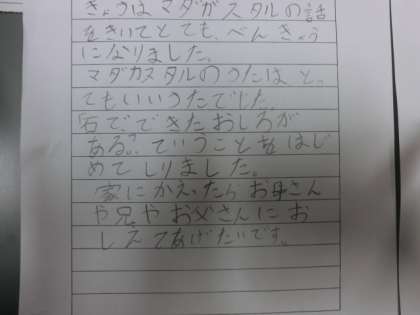 きょうはマダガスタルの話
をきいてとても、べんきょう
になりました。
マダカスタルのうたはとっ
てもいいうたでした。
「石で、できたおしろが
ある?」ていうことをはじ
めてしりました。
家にかえったらお母さん
や兄やお父さんにお
しえてあげたいです。